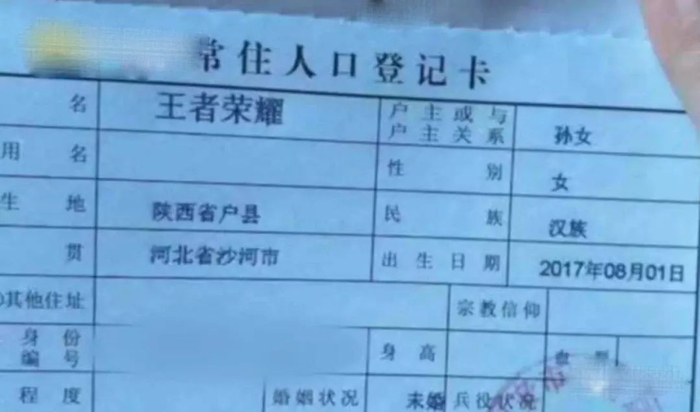 常住人口登记卡
名 王者荣耀 户主或与户主关系 孙女
用名 性别 女
生地 陕西省户县 民族 汉族
贯 河北省沙河市 出生日期 2017年08月01日
其他住址 宗教信仰
身份编号 身高 血型
程度 婚姻状况 未婚 兵役状况